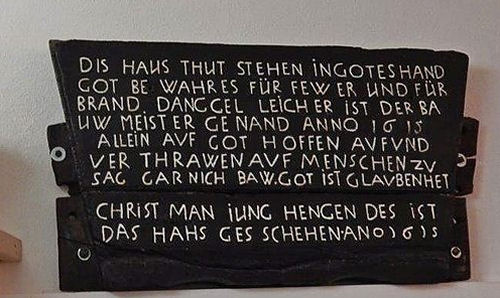 DIS HAUS THUT STEHEN INGOTES HAND
GOT BE WAHRES FÜR FEW ER UND FÜR
BRAND DANGGEL LEICH ER IST DER BA
UW MEIST ER GE NAND ANNO 1615
ALLEIN AUF GOT HOFFEN AUF UND
VER THRAWEN AUF MENSCHEN ZU
SAG GAR NICH BAW. GOT IST GLAUBEN HET
CHRIST MAN IUNG HENGEN DES IST
DAS HAHS GES SCHEHEN·ANO 1615